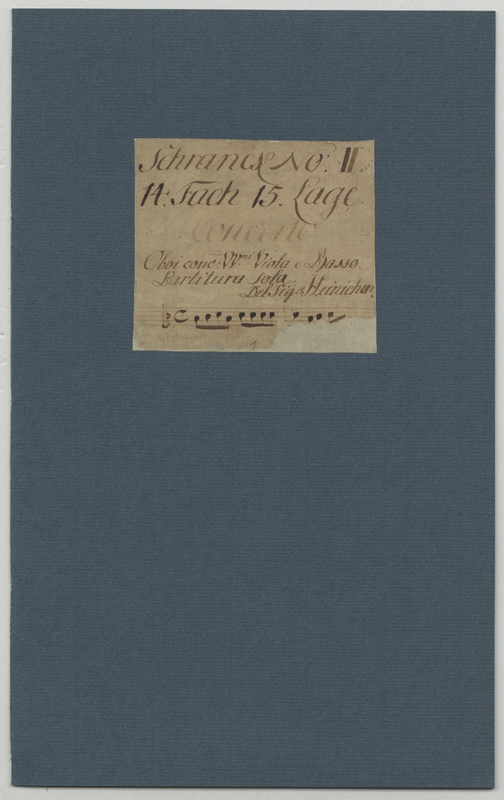 Schranck No: II.
14: Fach 15. Lage.
Concerto
Oboi conc: VVni Viola e Basso.
Partitura sola
Del Sig: Heinichen.
1